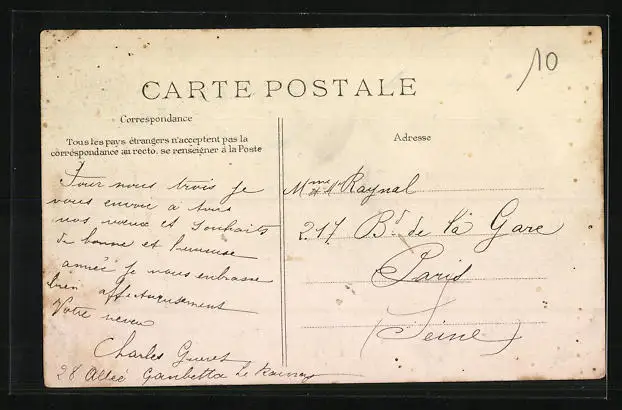 10
CARTE POSTALE
Correspondance
Tous les pays étrangers n'acceptent pas la
correspondance au recto. se renseigner à la Poste
Adresse
Pour nous trois je
vous envoie a tous
nos vœux et souhaits
de bonne et heureuse
année je vous embrasse
bien affectueusement
Votre neveu
Charles
28 Allée Gambetta Le Raincy
Mme & Mr Raynal
217 Bd de la Gare
Paris
(Seine)